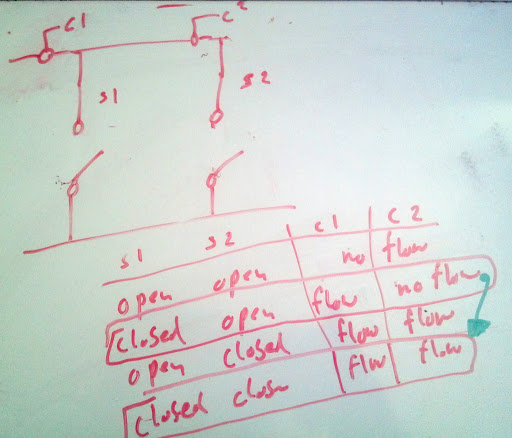 C1 C2
S1 S2
S1 S2 C1 C2
open open no flow
closed open flow no flow
open closed flow flow
closed close flow flow